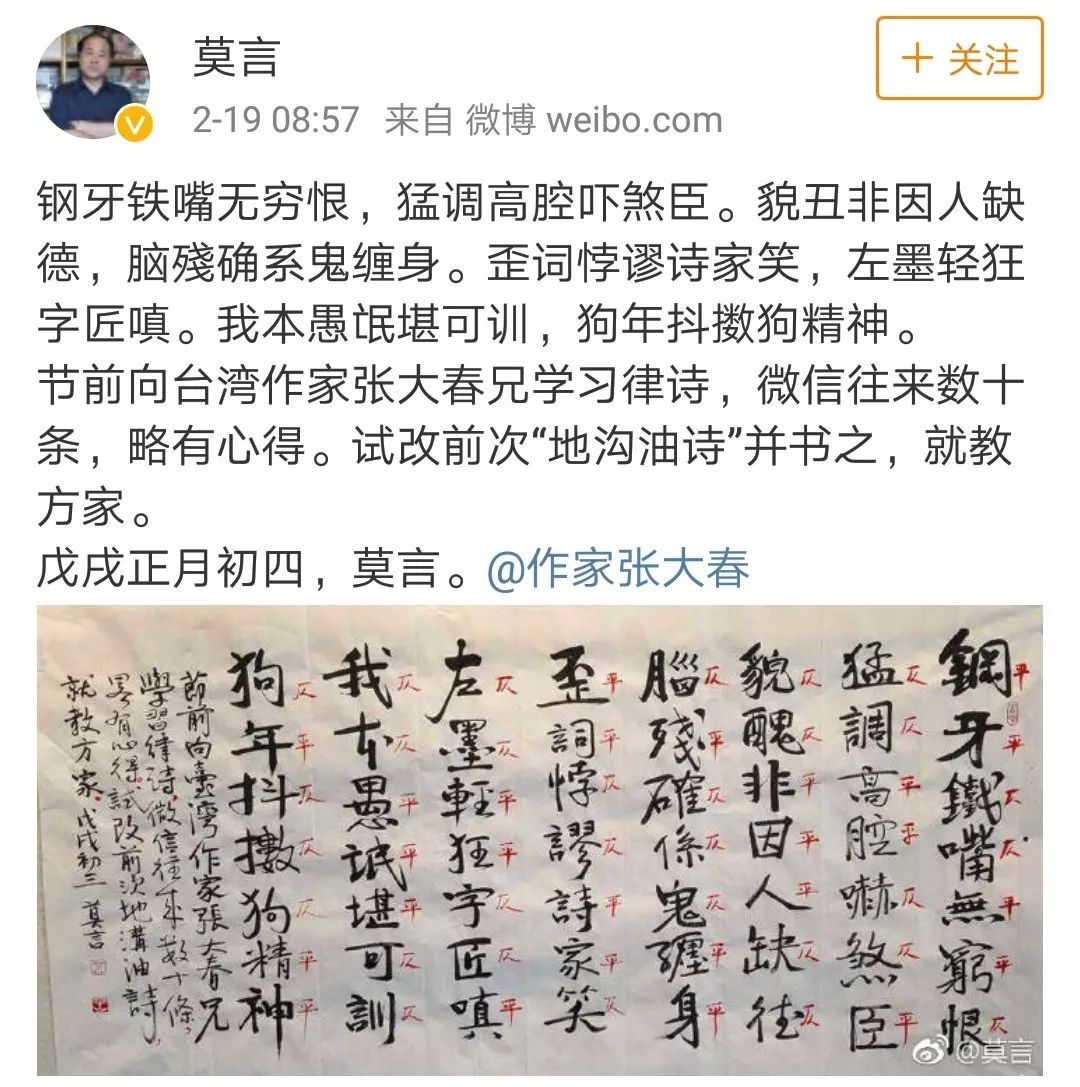 莫言
+ 关注
2-19 08:57 来自 微博 weibo.com
钢牙铁嘴无穷恨，猛调高腔吓煞臣。貌丑非因人缺
德，脑残确系鬼缠身。歪词悖谬诗家笑，左墨轻狂
字匠嗔。我本愚氓堪可训，狗年抖擞狗精神。
节前向台湾作家张大春兄学习律诗，微信往来数十
条，略有心得。试改前次“地沟油诗”并书之，就教
方家。
戊戌正月初四，莫言。@作家张大春
鋼牙鐵嘴無窮恨
平平仄仄平平仄
猛調高腔嚇煞臣
仄仄平平仄仄平
貌醜非因人缺德
仄仄平平平仄仄
腦殘確係鬼纏身
仄平仄仄仄平平
歪詞悖謬詩家笑
平平仄仄平平仄
左墨輕狂字匠嗔
仄仄平平仄仄平
我本愚氓堪可訓
仄仄平平平仄仄
狗年抖擻狗精神
仄平仄仄仄平平
節前向臺灣作家張大春兄
學習律詩，微信往來數十條，
略有心得，試改前次地溝油詩
就教方家，戊戌初三 莫言
@莫言